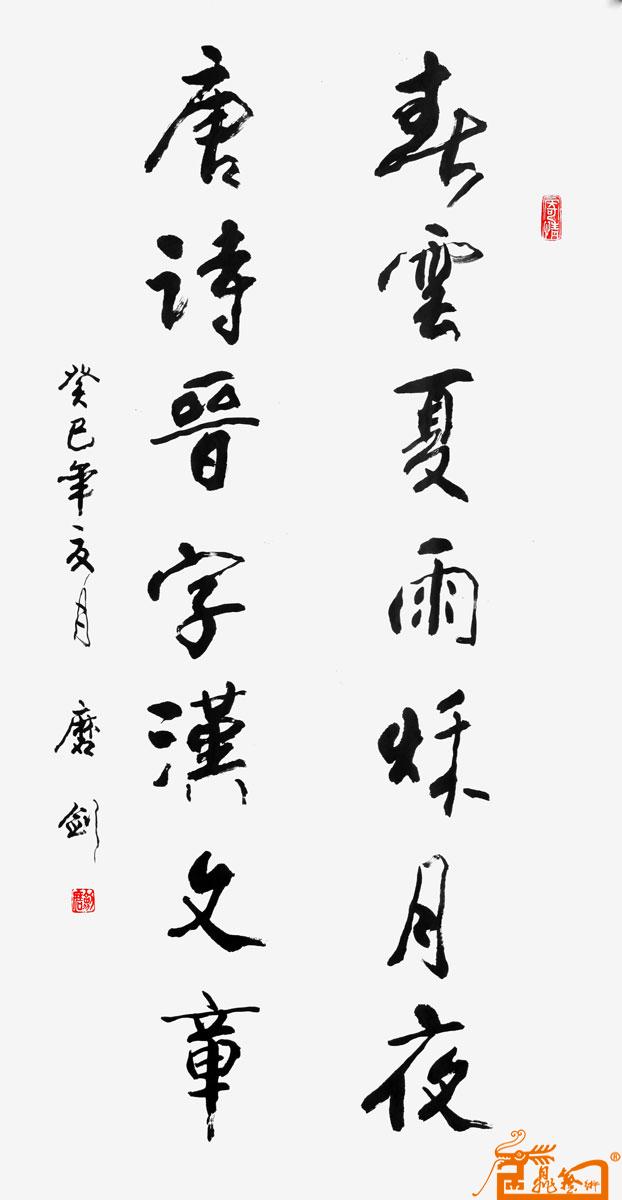 春雲夏雨秋月夜
唐詩晉字漢文章
癸巳年亥月 磨劍